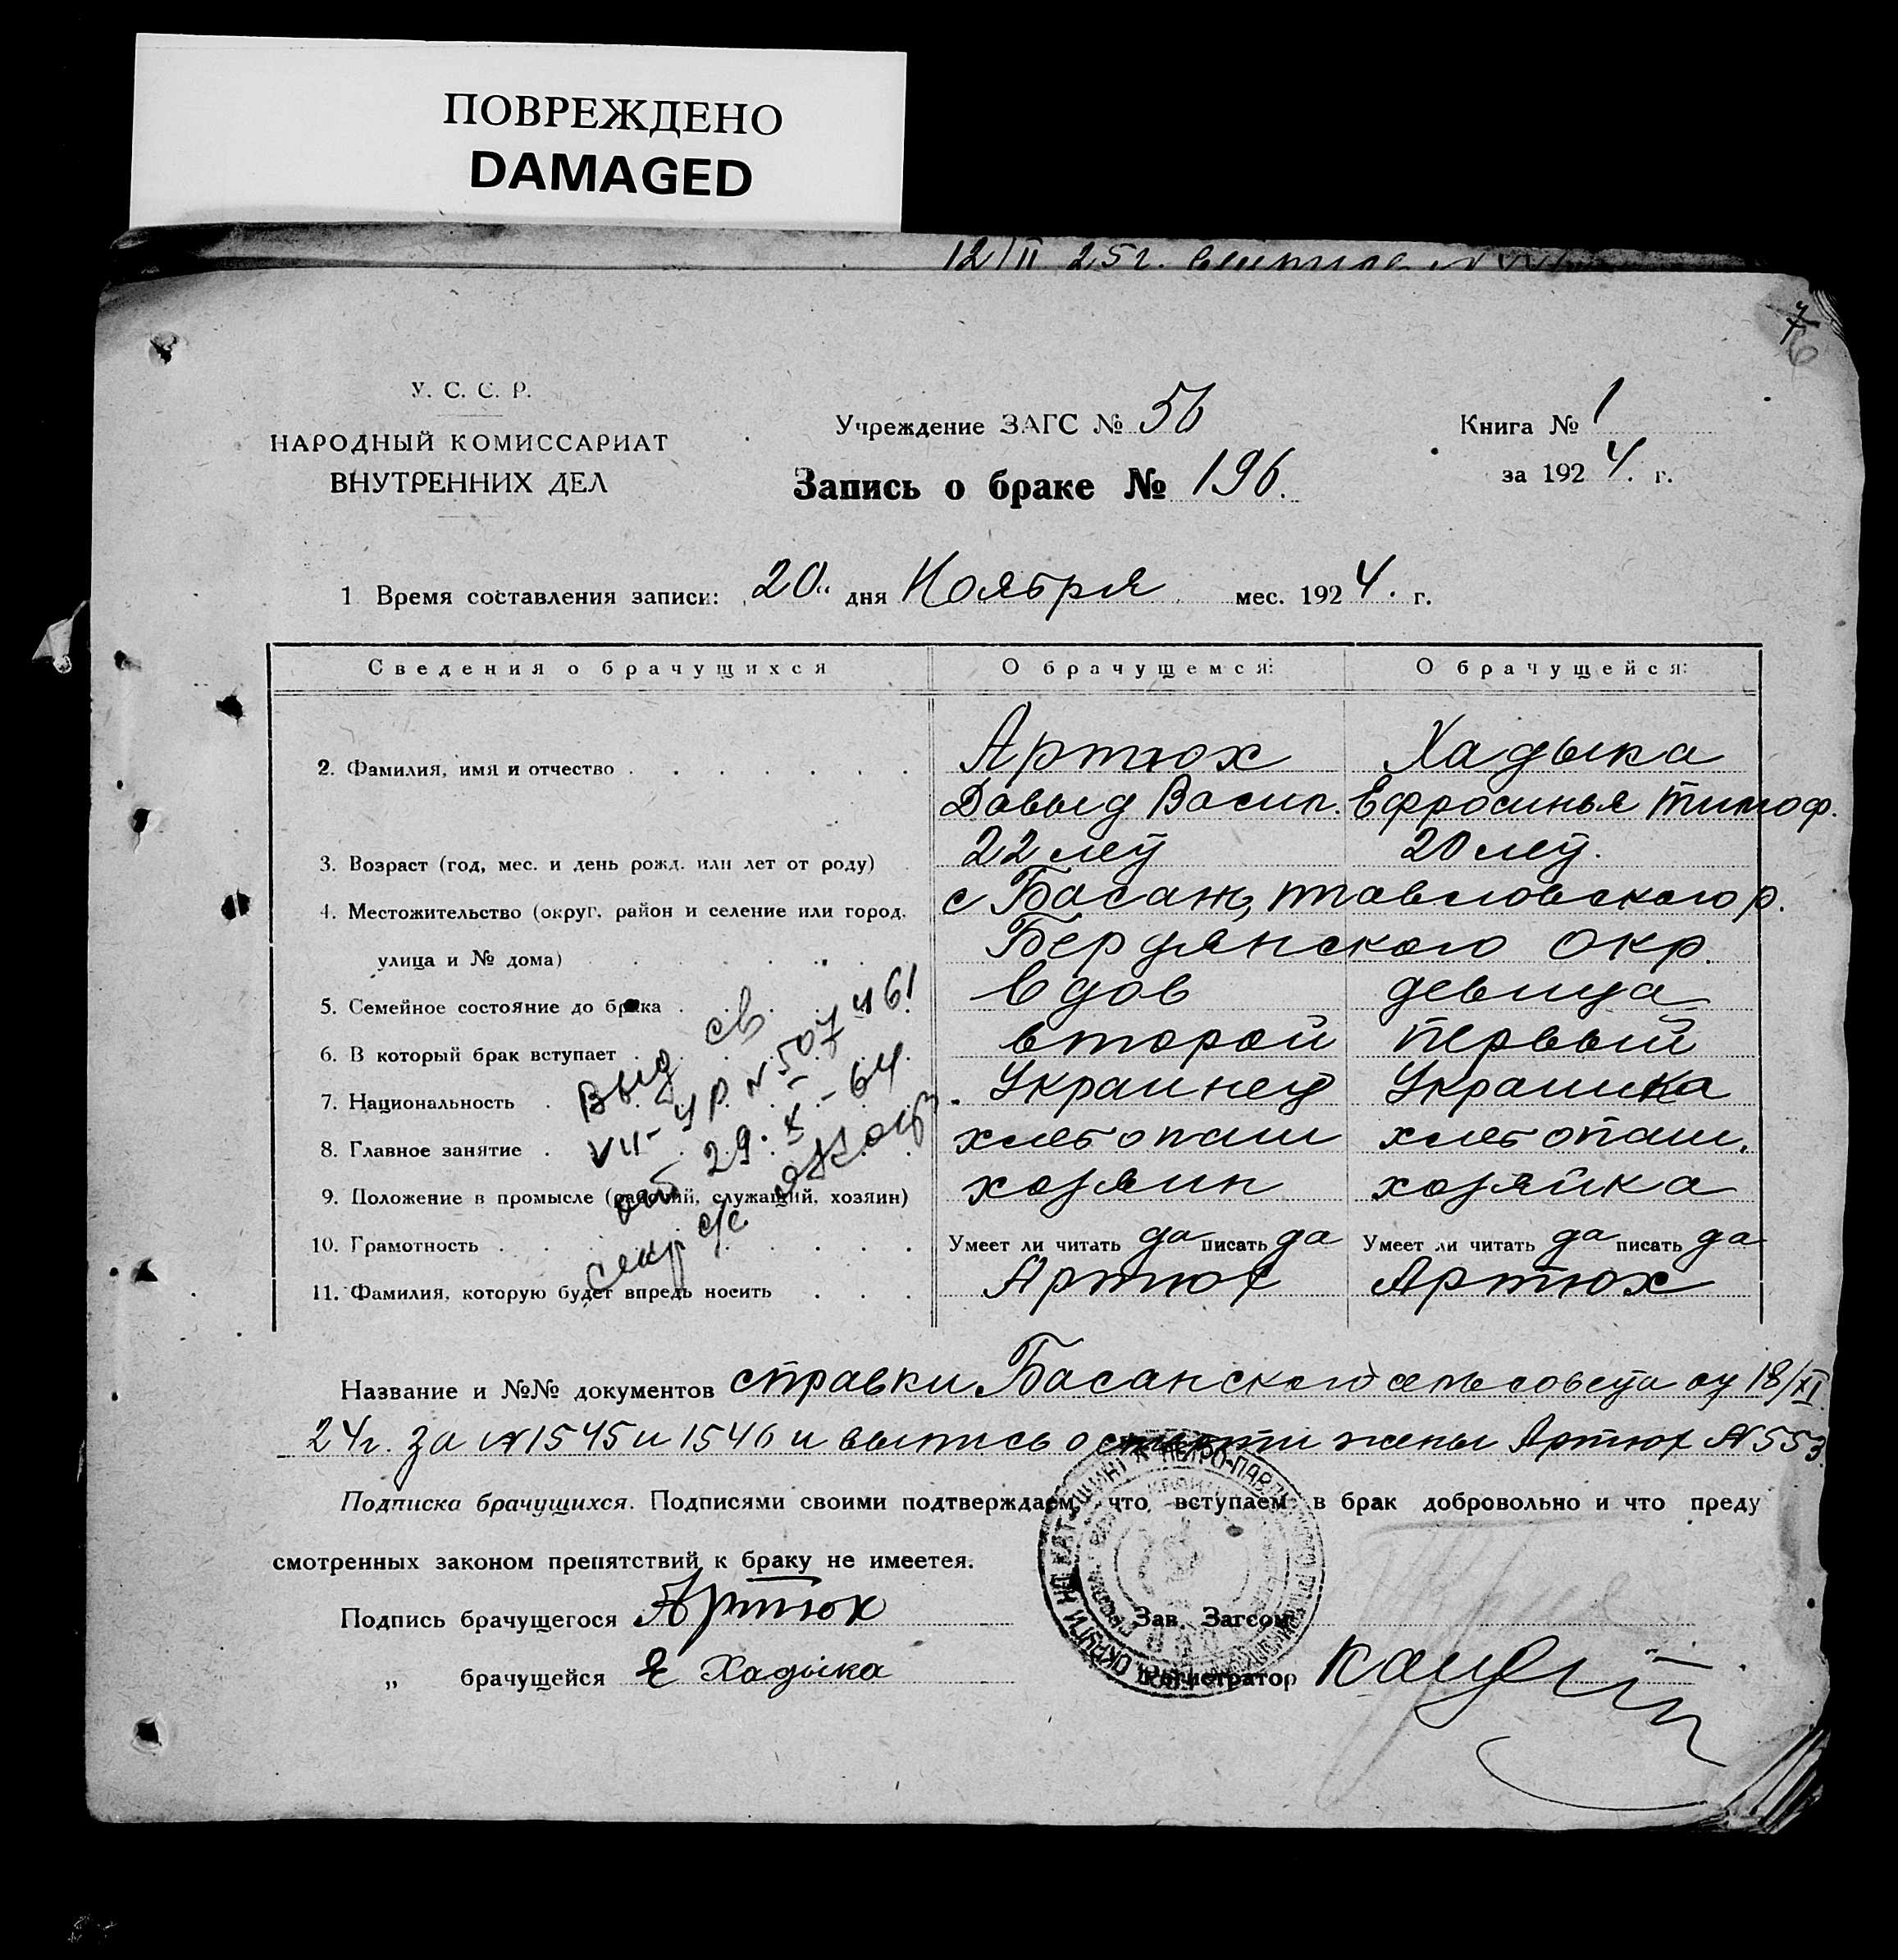 ПОВРЕЖДЕНО
DAMAGED
12/II 25г.
7
6
У. С. С. Р.
НАРОДНЫЙ КОМИССАРИАТ
ВНУТРЕННИХ ДЕЛ
Учреждение ЗАГС № 56
Книга № 1
Запись о браке № 196.
за 1924. г.
1 Время составления записи: 20 дня Ноября мес. 1924. г.
Сведения о брачущихся О брачущемся: О брачущейся:
2. Фамилия, имя и отчество Артюх Хадыка
Давыд Васил. Ефросинья Тимоф.
3. Возраст (год, мес. и день рожд. или лет от роду) 22 лет 20 лет.
4. Местожительство (округ, район и селение или город, с Басань, р.
улица и № дома) Бердянского окр.
5. Семейное состояние до брака вдов девица
6. В который брак вступает второй первый
7. Национальность Украинец Украинка
8. Главное занятие хлебопаш хлебопаш.
9. Положение в промысле (рабочий, служащий, хозяин) хозяин хозяйка
10. Грамотность Умеет ли читать да писать да Умеет ли читать да писать да
11. Фамилия, которую будет впредь носить Артюх Артюх
Выд св.
VII-УР № 507461
от 29.X-64
секр с/с
Название и №№ документов справки Басанского сельсовета от 18/XI
24г. за №1545 и 1546 и выпись о смерти жены Артюх №553
Подписка брачущихся. Подписями своими подтверждаем, что вступаем в брак добровольно и что преду
смотренных законом препятствий к браку не имеется.
Подпись брачущегося Артюх
Зав. Загсом
„ брачущейся Е Хадыка
Регистратор